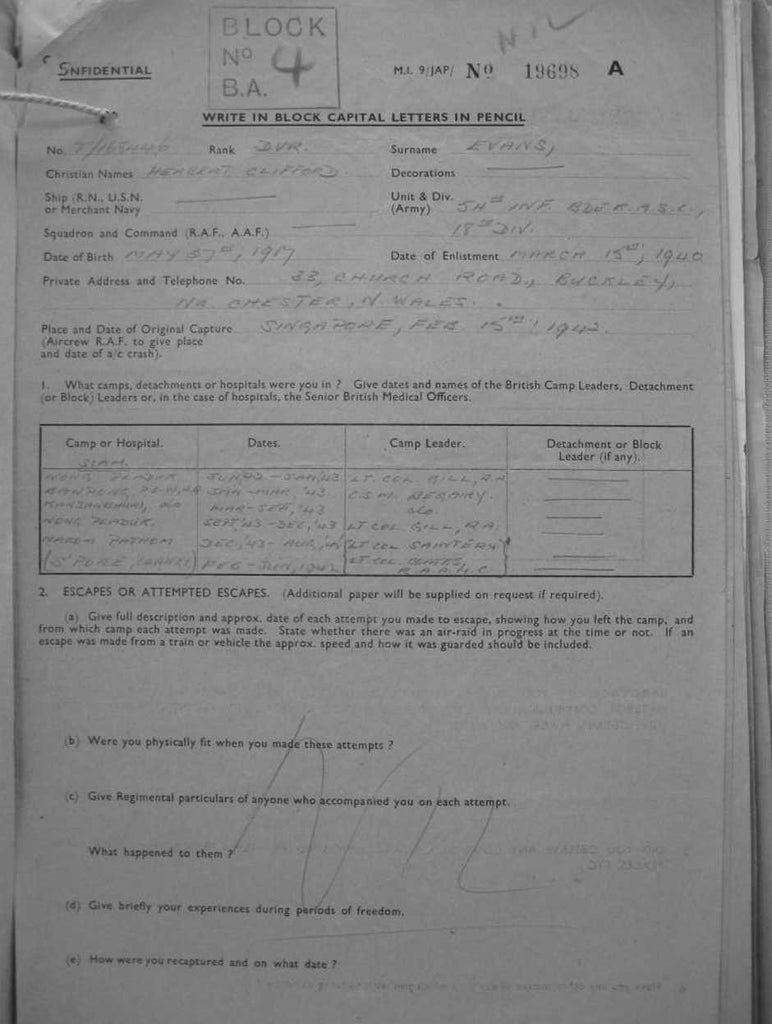 BLOCK
Nº 4
B.A.
NIL
CONFIDENTIAL
M.I. 9/JAP/ Nº 19698 A
WRITE IN BLOCK CAPITAL LETTERS IN PENCIL
No. Rank DVR. Surname EVANS,
Christian Names HERBERT CLIFFORD Decorations
Ship (R.N., U.S.N. or Merchant Navy
Unit & Div. (Army) 54TH INF. BDE. R.A.S.C.,
18TH DIV.
Squadron and Command (R.A.F., A.A.F.)
Date of Birth MAY 1917 Date of Enlistment MARCH 15TH, 1940
Private Address and Telephone No. 33, CHURCH ROAD, BUCKLEY,
NR. CHESTER, N. WALES.
Place and Date of Original Capture SINGAPORE, FEB. 15TH, 1942.
(Aircrew R.A.F. to give place
and date of a/c crash).
1. What camps, detachments or hospitals were you in ? Give dates and names of the British Camp Leaders, Detachment
(or Block) Leaders or, in the case of hospitals, the Senior British Medical Officers.
Camp or Hospital. Dates. Camp Leader. Detachment or Block Leader (if any).
SIAM.
NONG PLADUK JUN, 42 - JAN, 43 LT. COL. GILL, R.A
JAN - MAR, '43 C.S.M.
MAR - SEPT, '43
NONG PLADUK. SEPT '43 - DEC, '43 LT COL. GILL, R.A.
PATHOM DEC, '43 - AUG, LT COL. SAINTER
(S'PORE, CHANGI) FEB - JUN, 1942 LT COL.
2. ESCAPES OR ATTEMPTED ESCAPES. (Additional paper will be supplied on request if required).
(a) Give full description and approx. date of each attempt you made to escape, showing how you left the camp, and
from which camp each attempt was made. State whether there was an air-raid in progress at the time or not. If an
escape was made from a train or vehicle the approx. speed and how it was guarded should be included.
(b) Were you physically fit when you made these attempts ?
NIL
(c) Give Regimental particulars of anyone who accompanied you on each attempt.
What happened to them ?
(d) Give briefly your experiences during periods of freedom.
(e) How were you recaptured and on what date ?